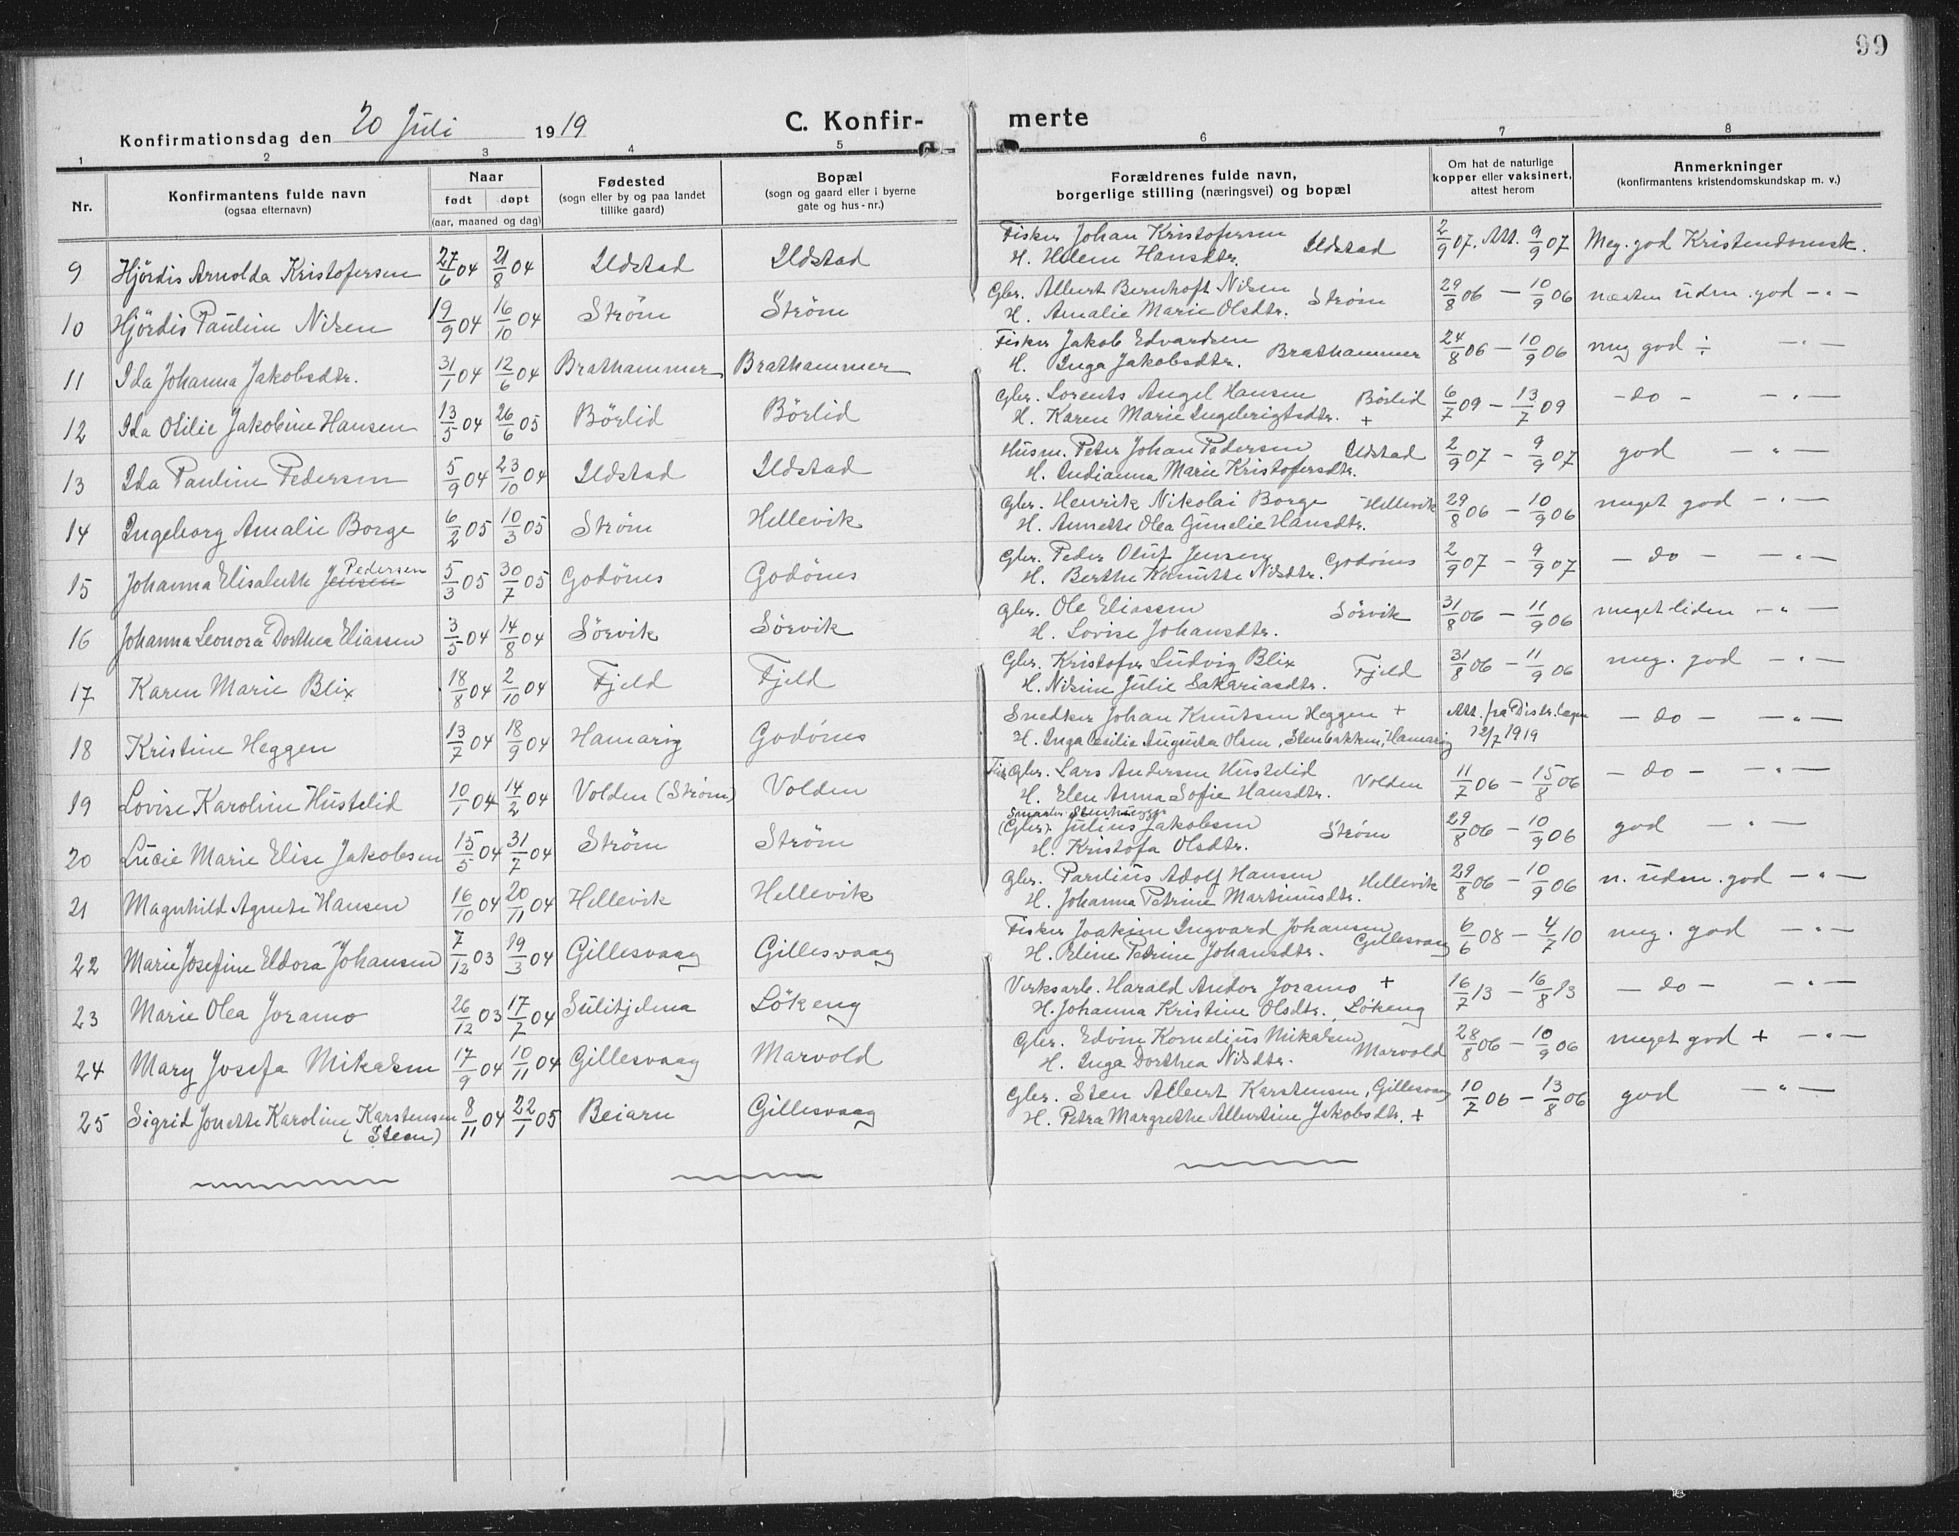 99
Konfirmationsdag den 20 Juli 1919 C. Konfirmerte
1 2 3 4 5 6 7 8
Nr. Konfirmantens fulde navn (ogsaa efternavn) Naar født døpt (aar, maaned og dag) Fødested (sogn eller by og paa landet tillike gaard) Bopæl (sogn og gaard eller i byerne gate og hus-nr.) Forældrenes fulde navn, borgerlige stilling (næringsvei) og bopæl Om hat de naturlige kopper eller vaksinert, attest herom Anmerkninger (konfirmantens kristendomskundskap m. v.)
9 Hjördis Arnolda Kristofersen 27/6 04 21/8 04 Ildstad Ildstad Fisker Johan Kristofersen Ildstad 2/9 07. Att. 9/9 07 Meg. god Kristendomsk.
H. Helene Hansdtr.
10 Hjördis Pauline Nilsen 19/9 04 16/10 04 Strøm Strøm Gbr. Albert Bernhoft Nilsen Strøm 29/8 06 — 10/9 06 næsten uden. god — " —
H. Amalie Marie Olsdtr.
11 Ida Johanna Jakobsdtr. 31/1 04 12/6 04 Brathammer Brathammer Fisker Jakob Edvardsen Brathammer 24/8 06 — 10/9 06 meg god ÷ — " —
H. Inga Jakobsdtr.
12 Ida Otilie Jakobine Hansen 13/5 04 26/6 05 Börlid Börlid Gbr. Lorents Angel Hansen Börlid 6/7 09 — 13/7 09 — do — — " —
H. Karen Marie Ingebrigtsdtr. +
13 Ida Pauline Pedersen 5/9 04 23/10 04 Ildstad Ildstad Husm. Peter Johan Pedersen Ildstad 2/9 07 — 9/9 07 god — " —
H. Indianna Marie Kristofersdtr.
14 Ingeborg Amalie Borge 6/2 05 10/3 05 Strøm Hellevik Gbr. Henrik Nikolai Borge Hellevik 29/8 06 — 10/9 06 meget god — " —
H. Annette Olea Gunelie Hansdtr.
15 Johanna Elisabeth Jensen Pedersen 5/3 05 30/7 05 Godönes Godönes Gbr. Peder Oluf Jensen Godönes 2/9 07 — 9/9 07 — do — — " —
H. Berthe Kanutte Nilsdtr.
16 Johanna Leonora Dorthea Eliassen 3/5 04 14/8 04 Sörvik Sörvik Gbr. Ole Eliassen Sörvik 31/8 06 — 11/9 06 meget liden — " —
H. Lovise Johansdtr.
17 Karen Marie Blix 18/8 04 2/10 04 Fjeld Fjeld Gbr. Kristofer Ludvig Blix Fjeld 31/8 06 — 11/9 06 meg. god — " —
H. Nilsine Julie Sakariasdtr.
18 Kristine Heggen 13/7 04 18/9 04 Hamarig Godönes Snedker Johan Knutsen Heggen + Att. fra Distr. lægen 12/7 1919 — do — — " —
H. Inga Cesilie Augusta Olsen, Stenbakken, Hamarig
19 Lovise Karoline Hustelid 10/1 04 14/2 04 Volden (Strøm) Volden Gbr. Lars Andersen Hustelid Volden 11/7 06 — 15/8 06 — do — — " —
H. Elen Anna Sofie Hansdtr.
20 Lucie Marie Elise Jakobsen 15/5 04 31/7 04 Strøm Strøm (Gbr.) Julius Jakobsen Strøm 29/8 06 — 10/9 06 god — " —
H. Kristofa Olsdtr.
21 Magnhild Agnete Hansen 16/10 04 20/11 04 Hellevik Hellevik Gbr. Paulius Adolf Hansen Hellevik 29/8 06 — 10/9 06 n. uden. god — " —
H. Johanna Petrine Martinusdtr.
22 Marie Josefine Eldora Johansen 7/12 03 19/3 04 Gillesvaag Gillesvaag Fisker Joakim Ingvard Johansen Gillesvaag 6/6 08 — 4/7 10 meg. god — " —
H. Eline Petrine Johansdtr.
23 Marie Olea Joramo 26/12 03 17/7 04 Sulitjelma Lökeng Verksarb. Harald Andor Joramo + 16/7 13 — 16/8 13 — do — — " —
H. Johanna Kristine Olsdtr. Lökeng
24 Mary Josefa Mikalsen 17/9 04 10/11 04 Gillesvaag Marvold Gbr. Edvin Kornelius Mikalsen Marvold 28/8 06 — 10/9 06 meget god + — " —
H. Inga Dorthea Nilsdtr.
25 Sigrid Jonette Karoline Karstensen (Steen) 8/11 04 22/1 05 Beiarn Gillesvaag Gbr. Sten Albert Karstensen, Gillesvaag 10/7 06 — 13/8 06 god — " —
H. Petra Margrethe Albertine Jakobsdtr. +